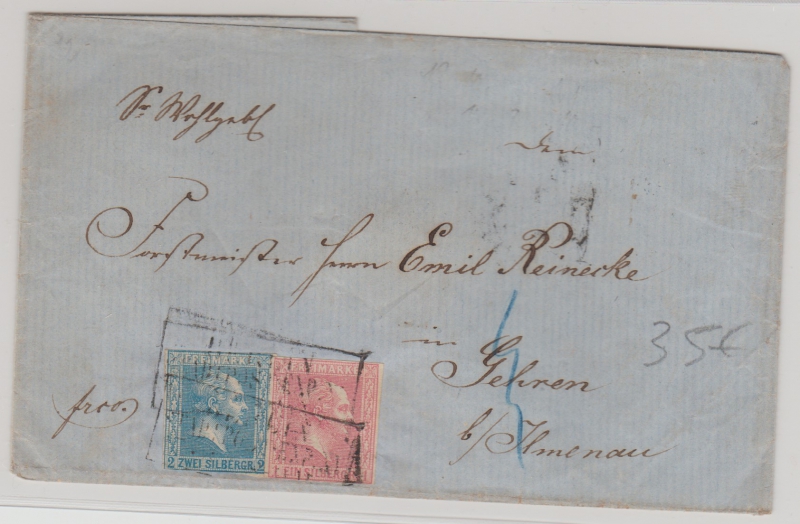 Sr Wohlgeb
dem
Forstmeister Herrn Emil Reinecke
in
Gehren
b/ Ilmenau
frco.
35€
FREIMARKE
2 ZWEI SILBERGR. 2
FREIMARKE
1 EIN SILBERGR.